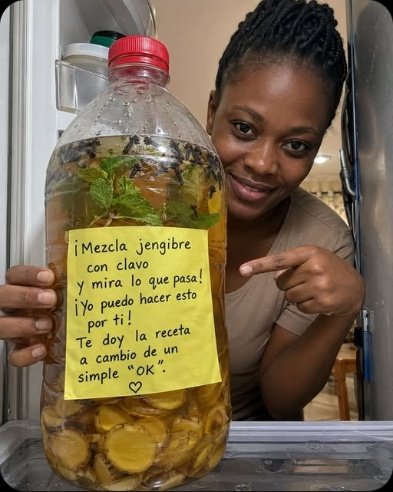 ¡Mezcla jengibre
con clavo
y mira lo que pasa!
¡Yo puedo hacer esto
por ti!
Te doy la receta
a cambio de un
simple "OK".